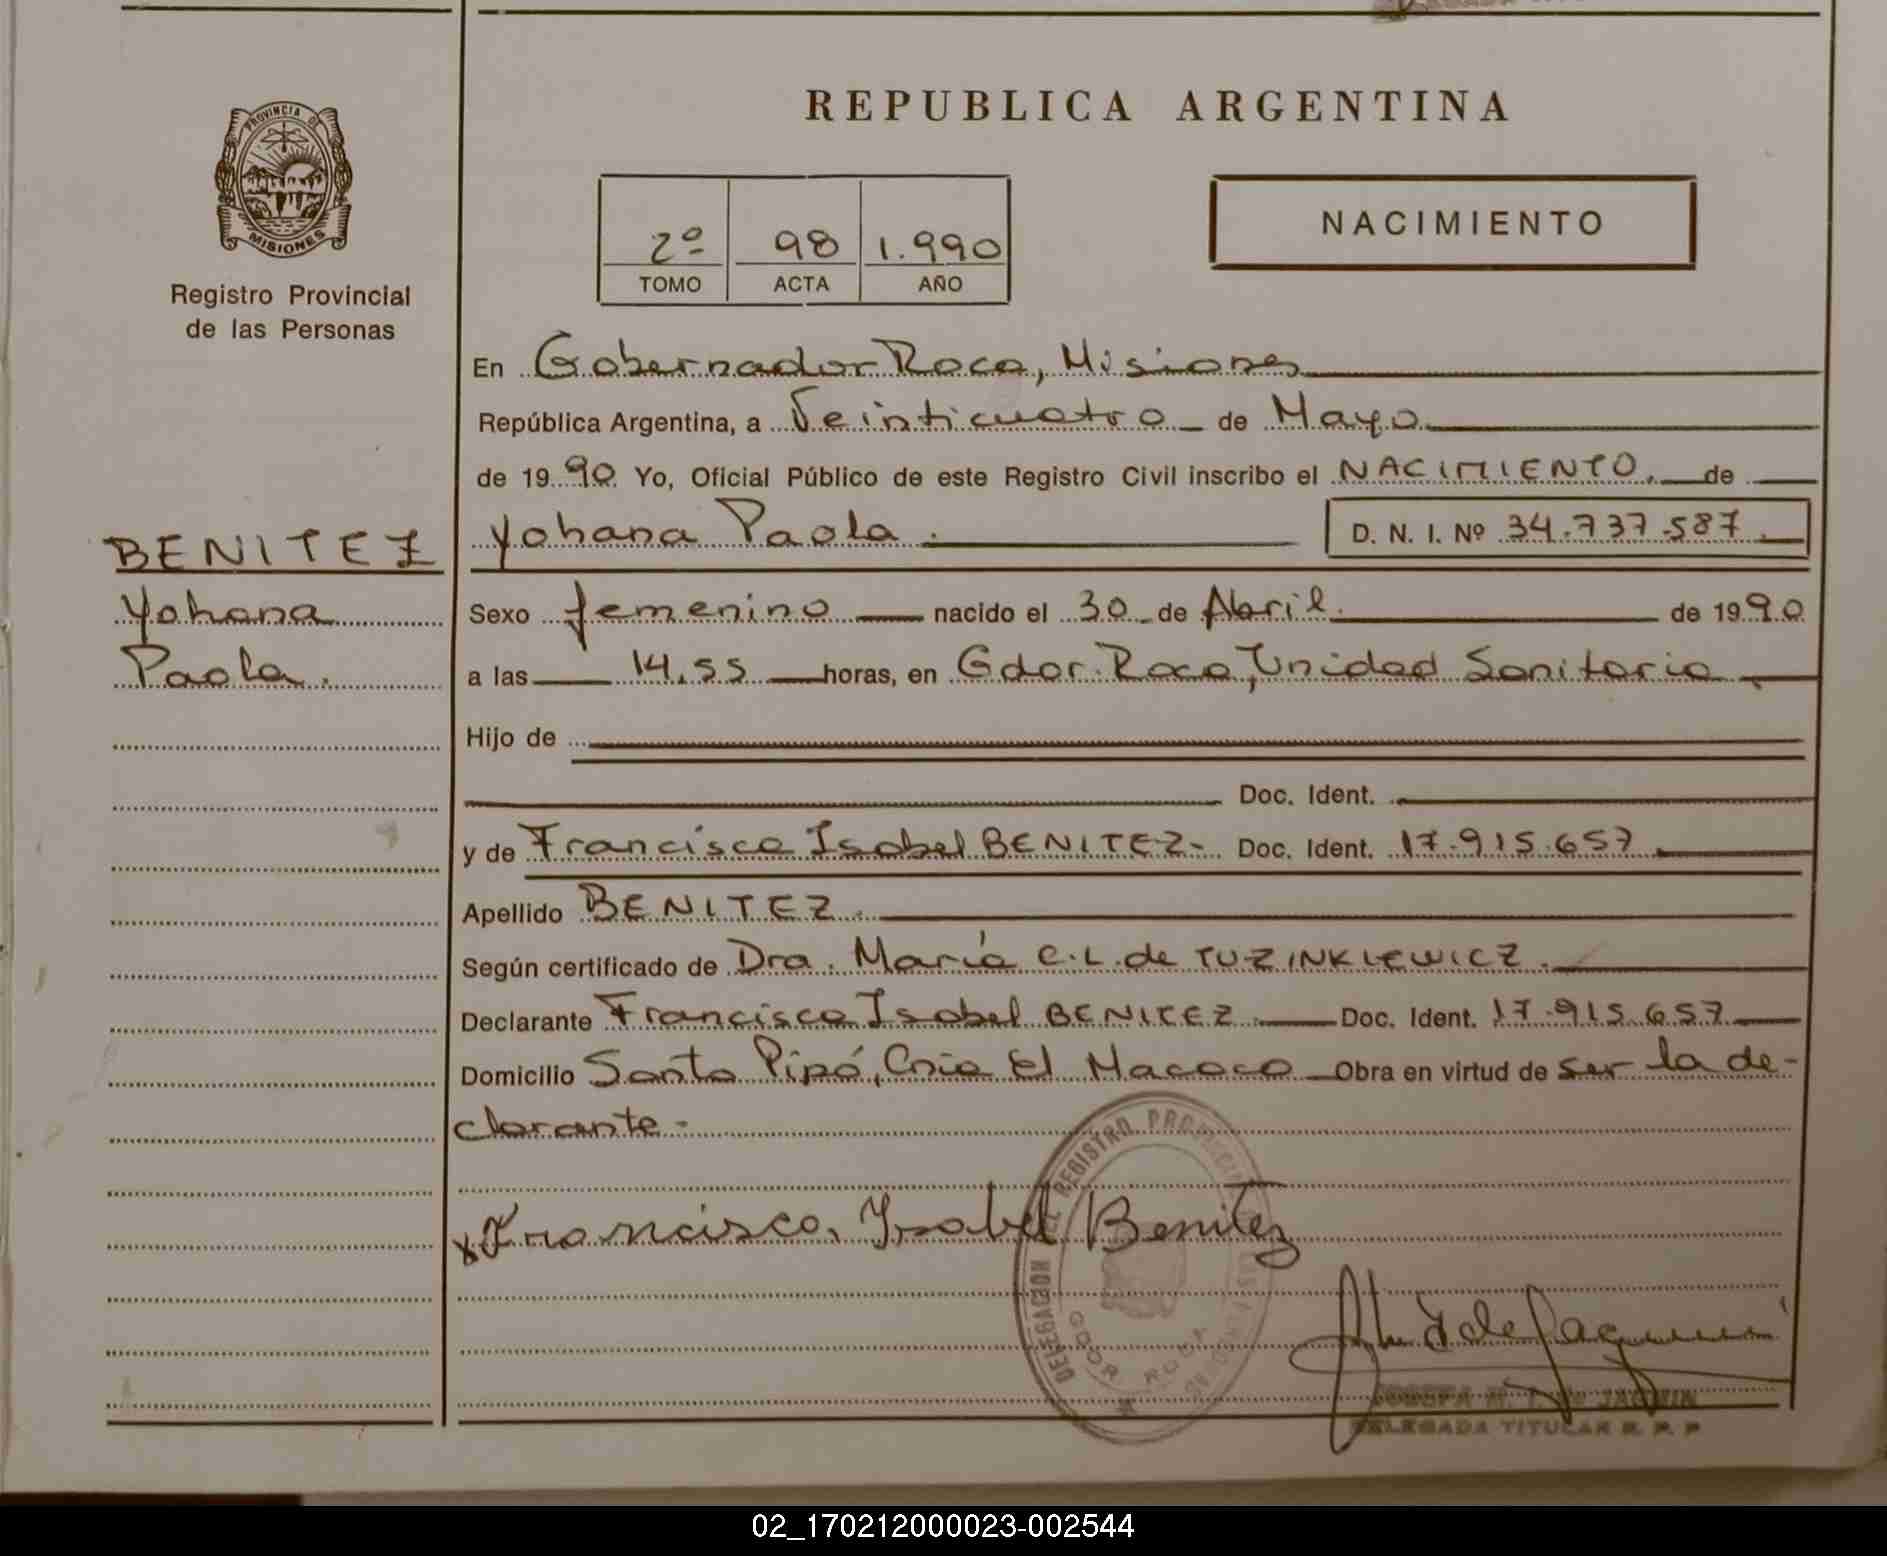 PROVINCIA DE
MISIONES
Registro Provincial
de las Personas
BENITEZ
Yohana
Paola.
REPUBLICA ARGENTINA
2º 98 1.990
TOMO ACTA AÑO
NACIMIENTO
En Gobernador Roca, Misiones
República Argentina, a Veinticuatro de Mayo
de 1990 Yo, Oficial Público de este Registro Civil inscribo el NACIMIENTO. de
Yohana Paola. D. N. I. Nº 34.737.587
Sexo femenino nacido el 30 de Abril. de 1990
a las 14,55 horas, en Gdor. Roca, Unidad Sanitaria
Hijo de
Doc. Ident.
y de Francisca Isabel BENITEZ- Doc. Ident. 17.915.657
Apellido BENITEZ.
Según certificado de Dra. María C.L. de TUZINKIEWICZ.
Declarante Francisca Isabel BENITEZ Doc. Ident. 17.915.657
Domicilio Santo Pipó, Cnia El Macaco Obra en virtud de ser la de-
clarante-
DELEGACION DEL REGISTRO PROVINCIAL DE LAS PERSONAS
GDOR ROCA
x Francisca, Ysabel Benitez
de Jaquin
JOSEFA M. de JAQUIN
DELEGADA TITULAR R. P. P
02_170212000023-002544